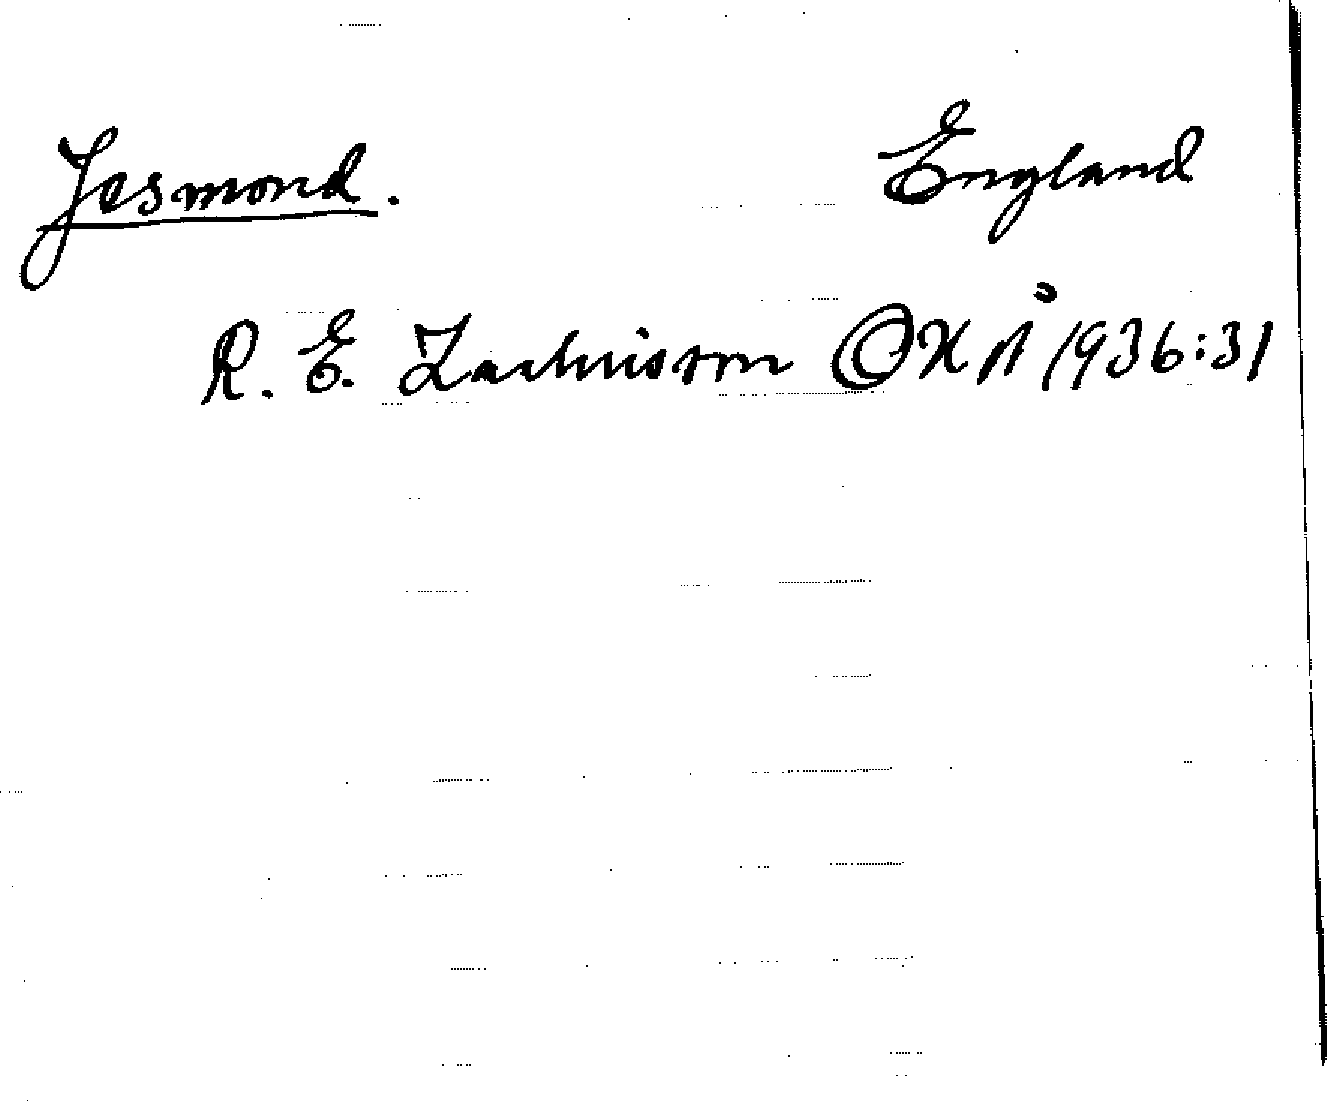 Jesmond. England
R. E. Zachrisson © XÅ 1936:31